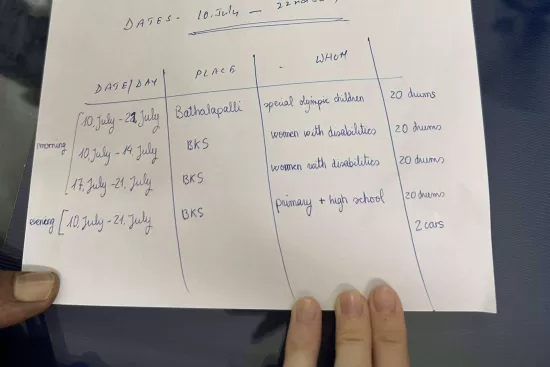 DATES - 10. July -
DATE/DAY PLACE - WHOM
morning
10. July - 21. July Bathalapalli special olympic children 20 drums
10. July - 14. July BKS women with disabilities 20 drums
17. July - 21. July BKS women with disabilities 20 drums
evening 10. July - 21. July BKS primary + high school 20 drums
2 cars